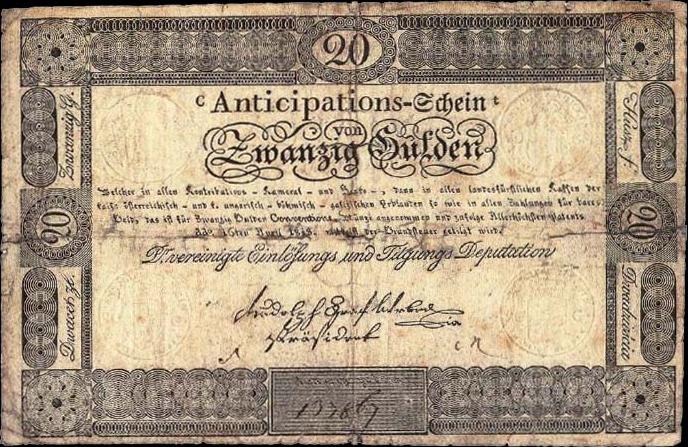 20
c Anticipations-Schein t
von
Zwanzig Gulden
Zwanzig G.
Husz f.
Welcher in allen Kontributions - Kameral - und Banko -, dann in allen landesfürstlichen Kassen der
kais: österreichisch - und k. ungarisch - böhmisch - galizischen Erblanden so wie in allen Zahlungen für bares
Geld, das ist für Zwanzig Gulden Conventions Münze angenommen und zufolge Allerhöchsten Patents
ddo 16ten April 1813 der Grundsteuer getilgt wird.
20
20
D. vereinigte Einlösungs und Tilgungs Deputation
Dwacet z.
Rudolph Graf Wrbna
Präsident